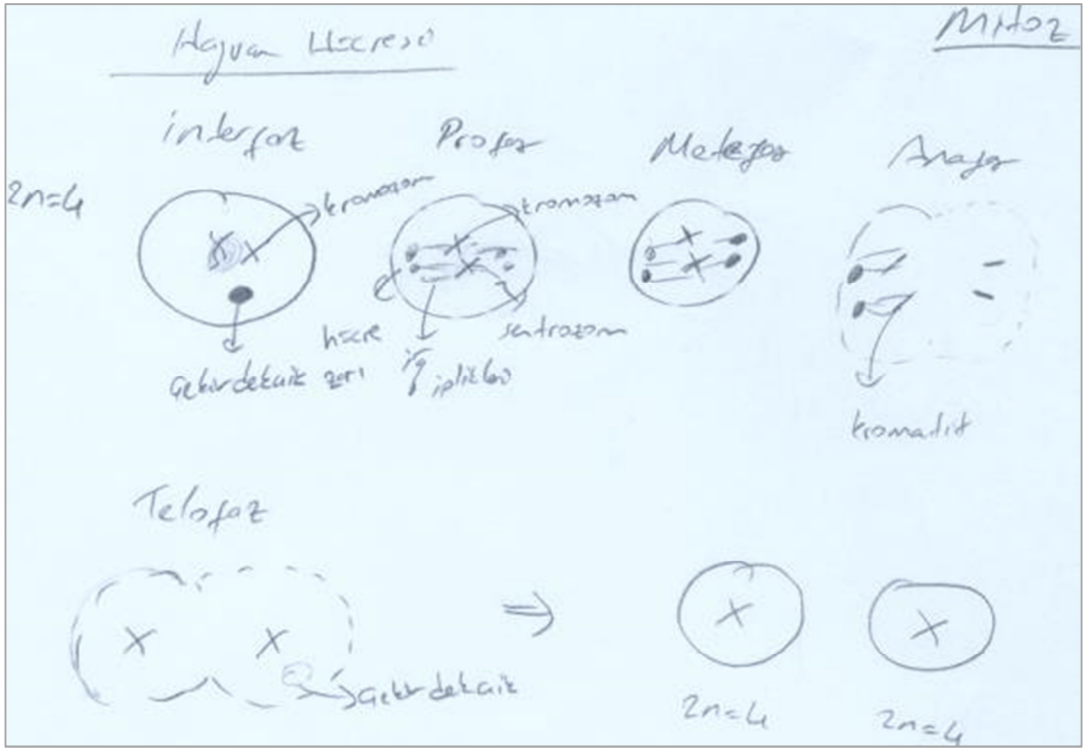 Hayvan Hücresi
Mitoz
interfaz
Profaz
Metafaz
Anafaz
2n=4
kromozom
kromozom
hücre
zarı
sentrozom
Çekirdekcik
iğ
iplikleri
kromatit
Telofaz
⇒
Çekirdekcik
2n=4
2n=4